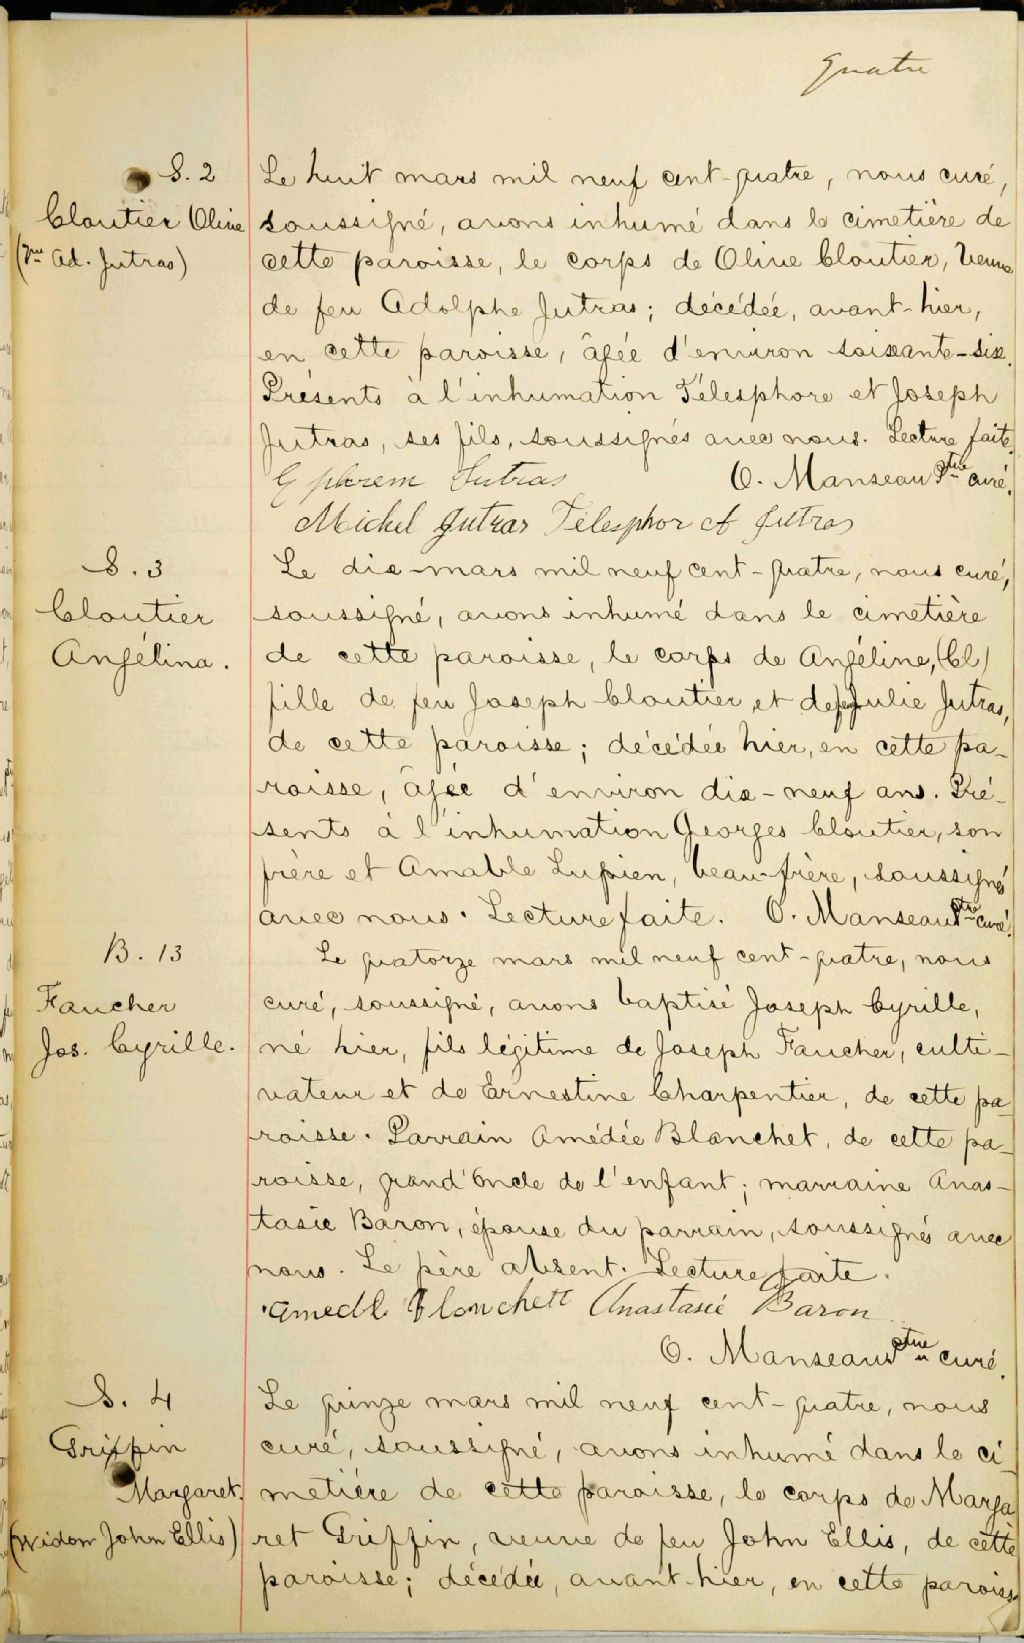 quatre
S. 2
Cloutier Oline
(Vve Ad. Jutras)
Le huit mars mil neuf cent-quatre, nous curé,
soussigné, avons inhumé dans le cimetière de
cette paroisse, le corps de Oline Cloutier, veuve
de feu Adolphe Jutras; décédée, avant-hier,
en cette paroisse, âgée d'environ soixante-six.
Présents à l'inhumation Télesphore et Joseph
Jutras, ses fils, soussignés avec nous. Lecture faite.
Ephrem Jutras O. Manseau Ptre curé.
Michel Jutras Télesphor et Jutras
S. 3
Cloutier
Angélina.
Le dix mars mil neuf cent-quatre, nous curé,
soussigné, avons inhumé dans le cimetière
de cette paroisse, le corps de Angéline, (Cl)
fille de feu Joseph Cloutier et de feu Julie Jutras,
de cette paroisse; décédée hier, en cette pa-
roisse, âgée d'environ dix-neuf ans. Pré-
sents à l'inhumation Georges Cloutier, son
frère et Amable Lupien, beau-frère, soussignés
avec nous. Lecture faite. O. Manseau Ptre curé.
B. 13
Faucher
Jos. Cyrille.
Le quatorze mars mil neuf cent-quatre, nous
curé, soussigné, avons baptisé Joseph Cyrille,
né hier, fils légitime de Joseph Faucher, culti-
vateur et de Ernestine Charpentier, de cette pa
roisse. Parrain Amédée Blanchet, de cette pa-
roisse, grand'oncle de l'enfant; marraine Anas-
tasie Baron, épouse du parrain, soussignés avec
nous. Le père absent. Lecture faite.
Amedé Blonchett Anastasie Baron
O. Manseau Ptre curé.
S. 4
Griffin
Margaret.
(Widow John Ellis)
Le quinze mars mil neuf cent-quatre, nous
curé, soussigné, avons inhumé dans le ci-
metière de cette paroisse, le corps de Marga
ret Griffin, veuve de feu John Ellis, de cette
paroisse; décédée, avant-hier, en cette paroisse